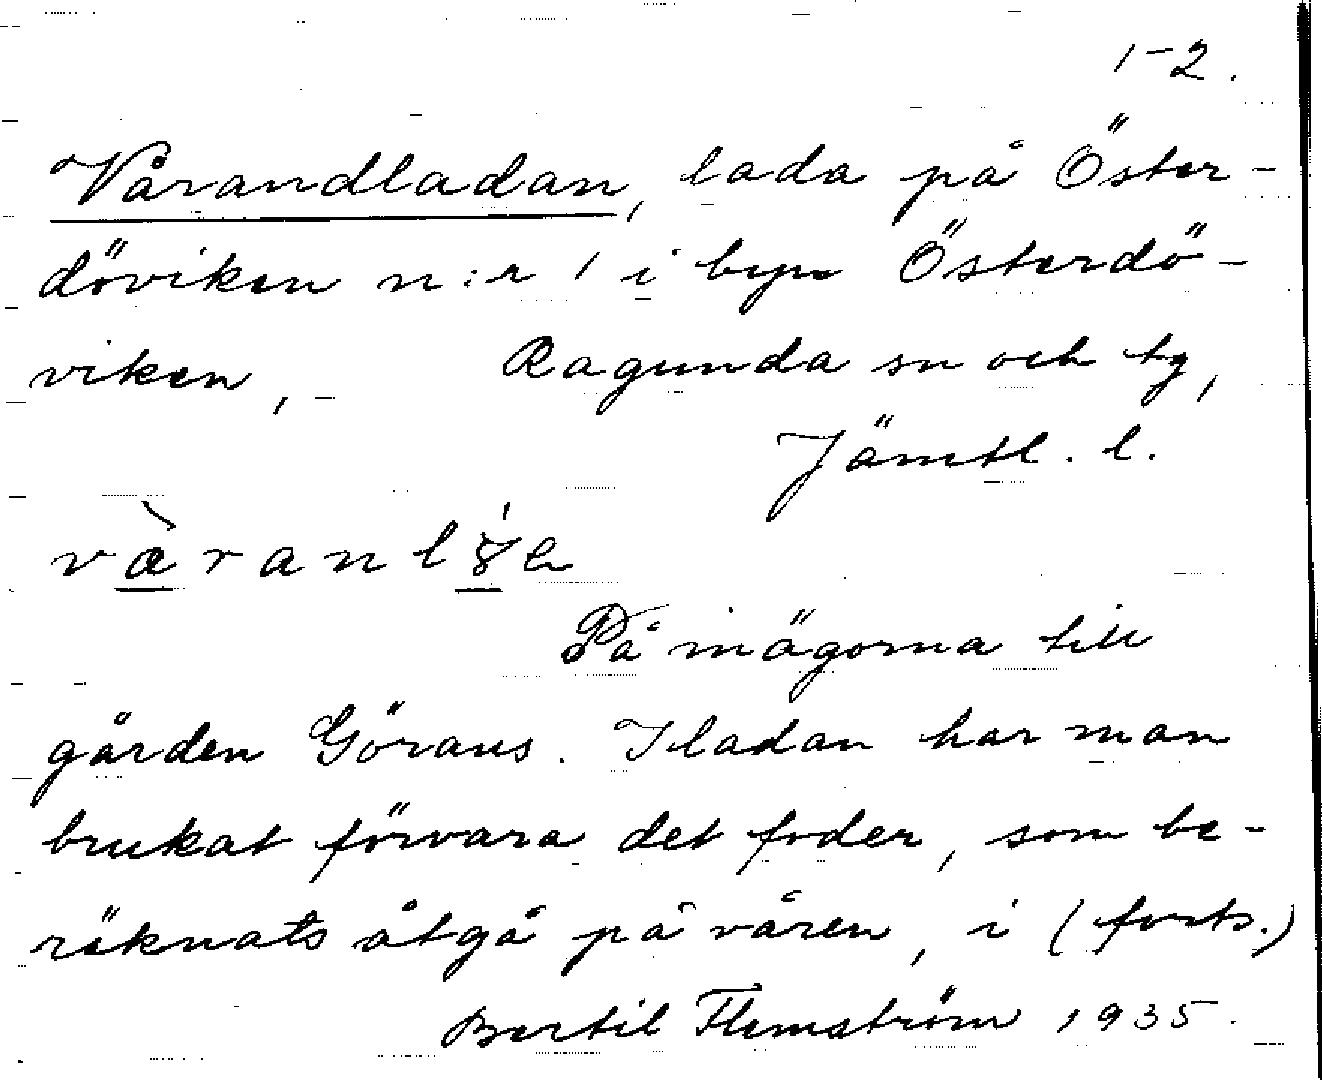 1-2.
Vårandladan, lada på Öster-
döviken n:r 1 i byn Österdö-
viken, - Ragunda sn och tg,
Jämtl. l.
På inägorna till
gården Görans. I ladan har man
brukat förvara det foder, som be-
räknats åtgå på våren, i (forts.)
Bertil Flemström 1935.